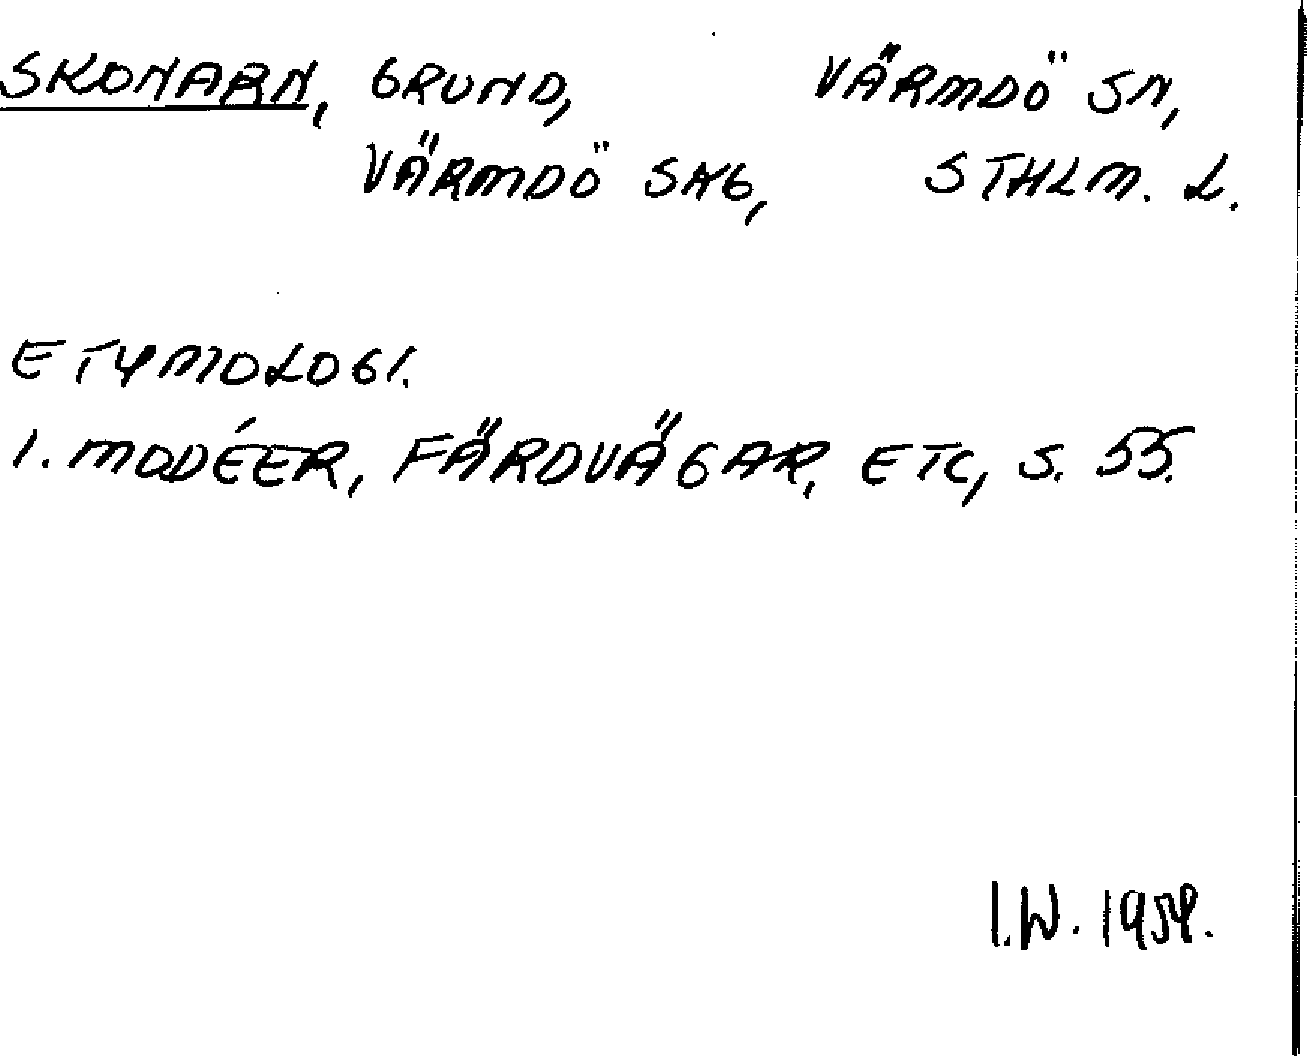 SKONARN, GRUND, VÄRMDÖ SN,
VÄRMDÖ SKG, STHLM. L.
ETYMOLOGI.
I. MODÉER, FÄRDVÄGAR, ETC, S. 55.
I.W. 1959.